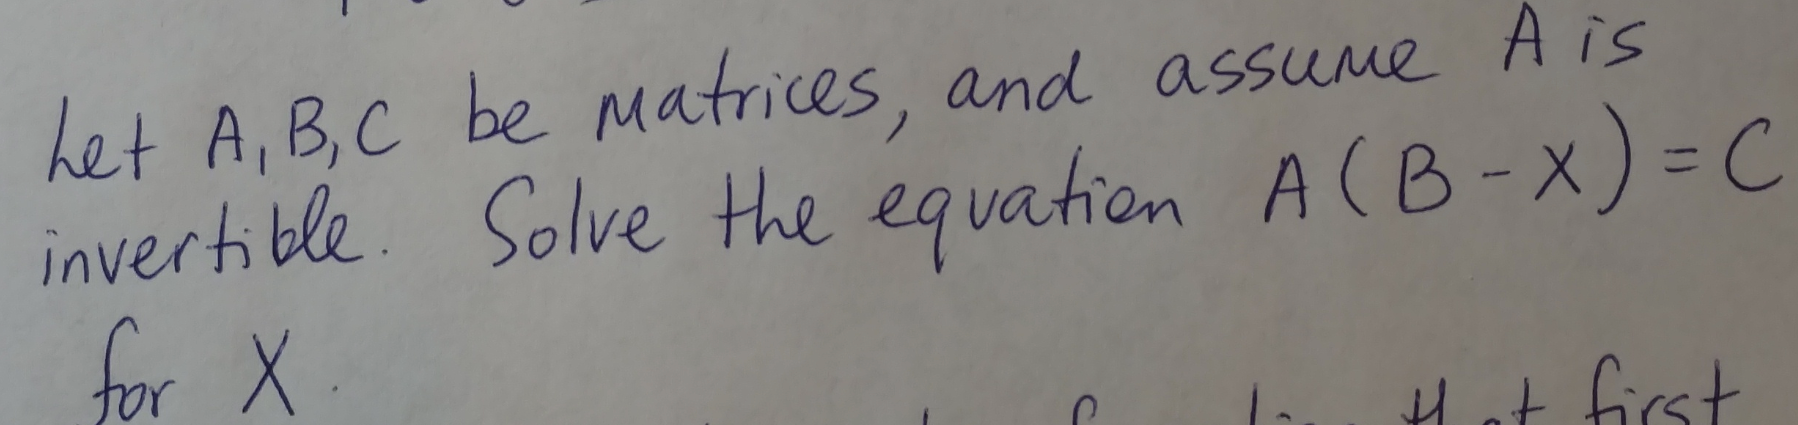 Let A, B, C be matrices, and assume A is
invertible. Solve the equation A(B-X)=C
for X.
that first